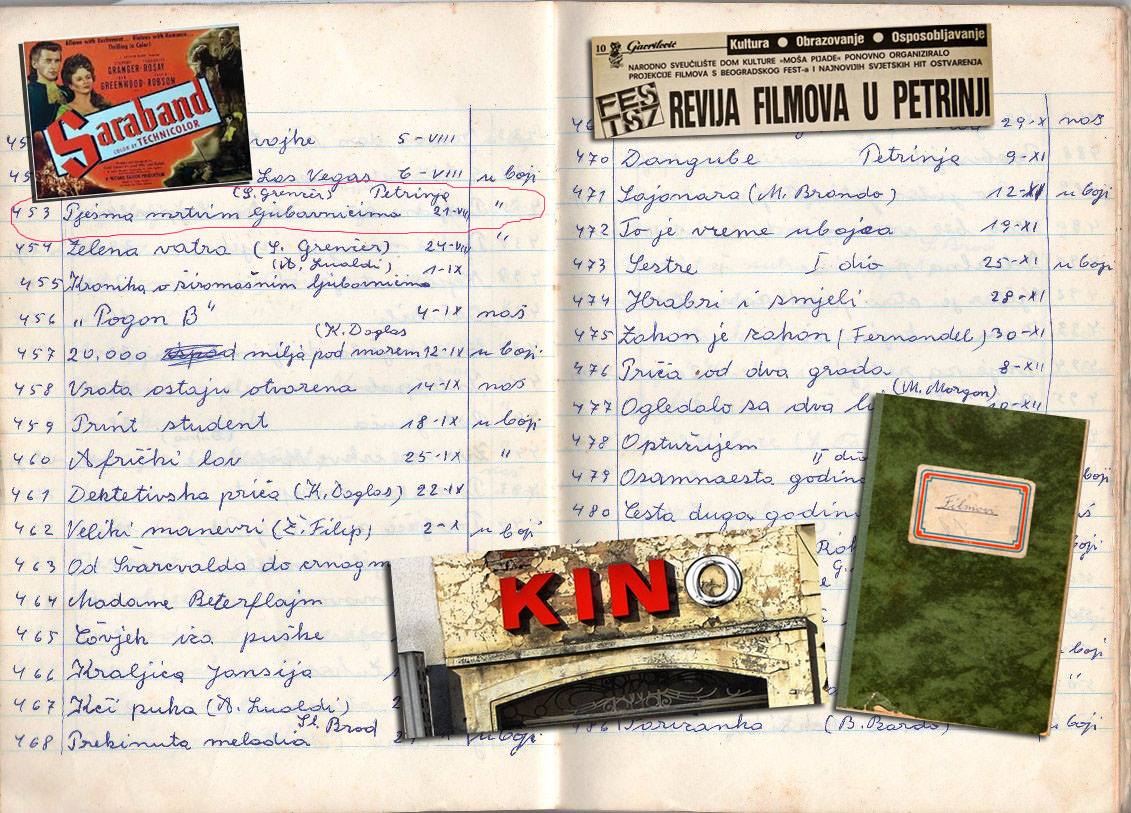 Aflame with Excitement... Riotous with Romance...
Thrilling in Color!
GRANGER · ROSAY
GREENWOOD · ROBSON
Saraband
COLOR BY TECHNICOLOR
vojke 5-VIII
Las Vegas 6-VIII u boji
(S. Grenžer) Petrinja
453 Pjesma mrtvim ljubavnicima 21-VIII "
454 Zelena vatra (S. Grenžer) 24-VIII "
(A. Lualdi) 1-IX
455 Kronika o siromašnim ljubavnicima
456 „Pogon B" 4-IX naš
(K. Daglas
457 20,000 milja pod morem 12-IX u boji
458 Vrata ostaju otvorena 14-IX naš
459 Print student 18-IX u boji
460 Afrički lov 25-IX "
461 Dektetivska priča (K. Daglas) 22-IX
462 Veliki manevri (Ž. Filip) 2-X u boji
463 Od Švarcvalda do crnog
464 Madame Beterflajm
465 Čovjek iza puške
466 Kraljica Jansija
467 Kći puka (A. Lualdi)
Sl. Brod
468 Prekinuta melodia u boji
10 Gavrilović Kultura ● Obrazovanje ● Osposobljavanje
NARODNO SVEUČILIŠTE DOM KULTURE »MOŠA PIJADE« PONOVNO ORGANIZIRALO
PROJEKCIJE FILMOVA S BEOGRADSKOG FEST-a I NAJNOVIJIH SVJETSKIH HIT OSTVARENJA
FEST 57 REVIJA FILMOVA U PETRINJI
29-X naš
470 Dangube Petrinja 9-XI
471 Sajonara (M. Brando) 12-XI u boji
472 To je vreme ubojca 19-XI
473 Sestre I dio 25-XI u boji
474 Hrabri i smjeli 28-XI
475 Zakon je zakon (Fernandel) 30-XI
476 Priča od dva grada 8-XII
(M. Morgan)
477 Ogledalo sa dva
478 Optužujem
II dio
479 Osamnaesta godina boji
480 Cesta duga godinu
boji
"
486 Parizanka (B. Bardo) u boji
KINO
Filmovi